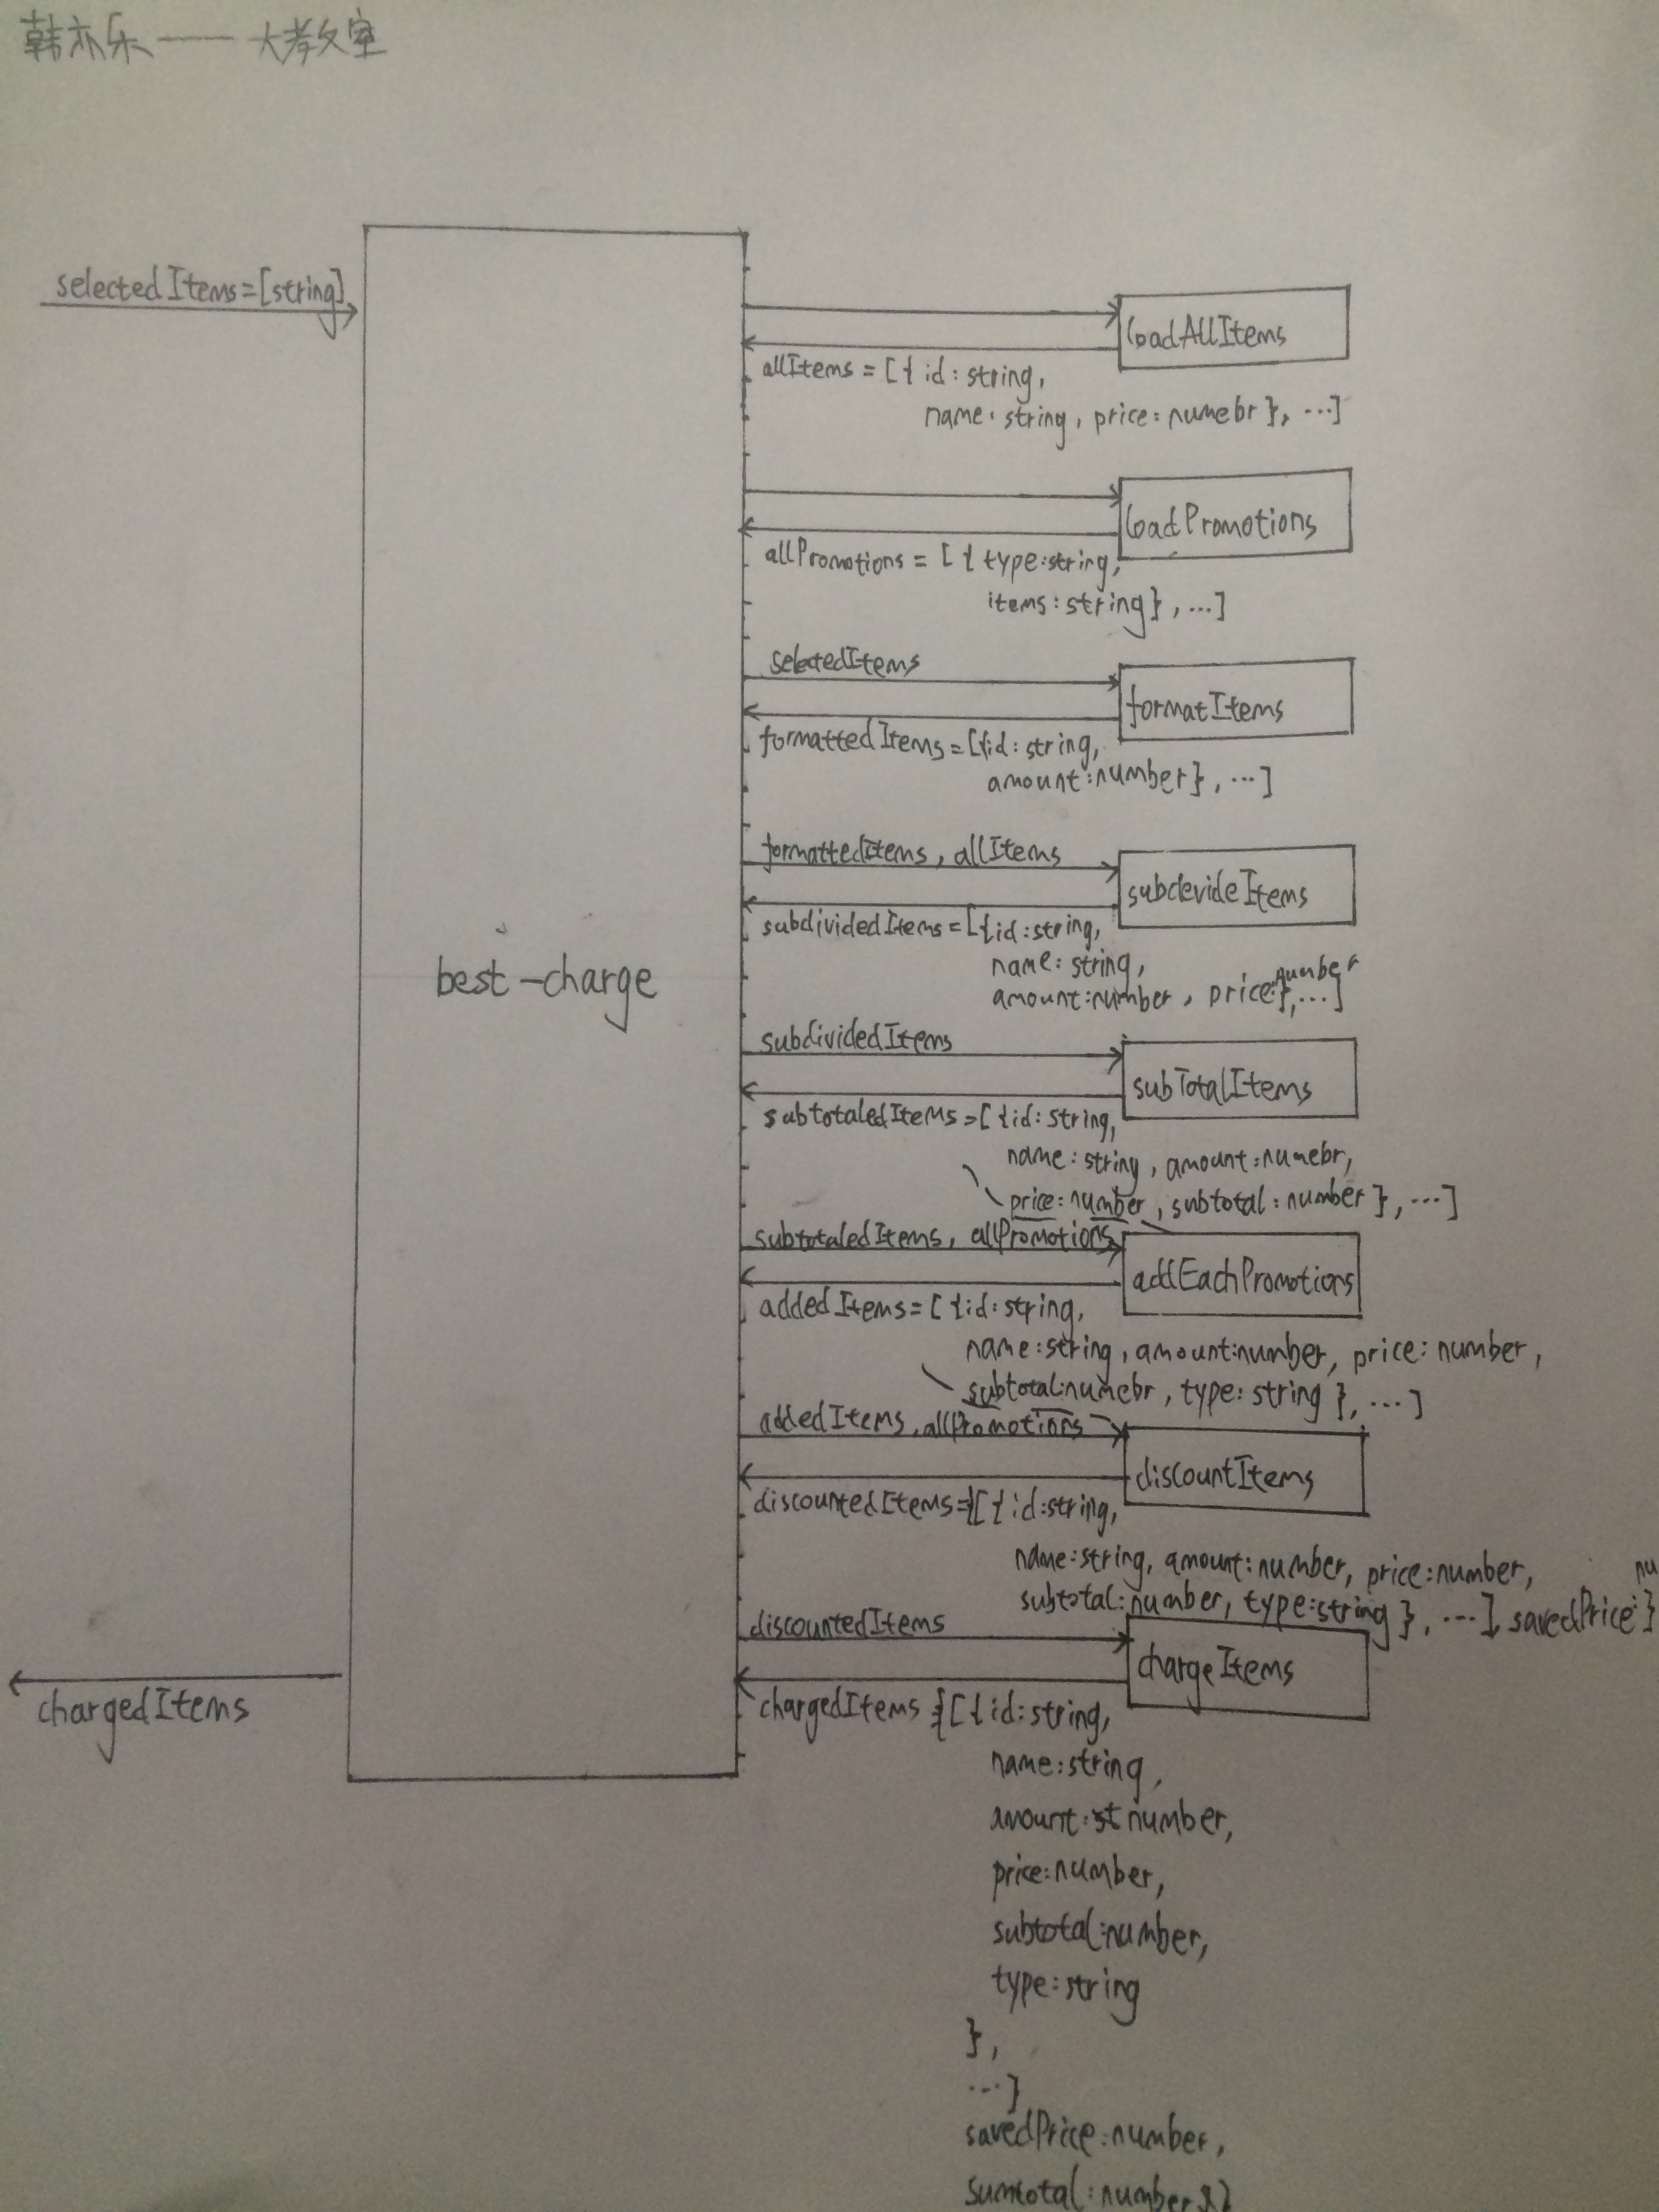 韩亦乐——大教室
selectedItems=[string]
loadAllItems
allItems = [{ id: string,
name: string, price: numebr }, ...]
loadPromotions
allPromotions = [ { type:string,
items: string } , ...]
selectedItems
formatItems
formattedItems = [{id: string,
amount:number} , ...]
formattedItems, allItems
subdevideItems
subdividedItems = [{id:string,
name: string,
amount:number, price:number}, ...]
best-charge
subdividedItems
subTotalItems
subtotaledItems = [ {id: string,
name: string, amount:numebr,
price: number, subtotal: number }, ...]
subtotaledItems, allPromotions
addEachPromotions
addedItems = [ {id: string,
name:string, amount:number, price: number,
subtotal:numebr, type: string }, ...]
addedItems, allPromotions
discountItems
discountedItems={[ { id:string,
name:string, amount:number, price:number,
nu
subtotal:number, type:string }, ...], savedPrice: }
discountedItems
chargeItems
chargedItems
chargedItems {[ { id:string,
name:string,
amount: number,
price:number,
subtotal:number,
type:string
},
...]
savedPrice:number,
sumtotal:number